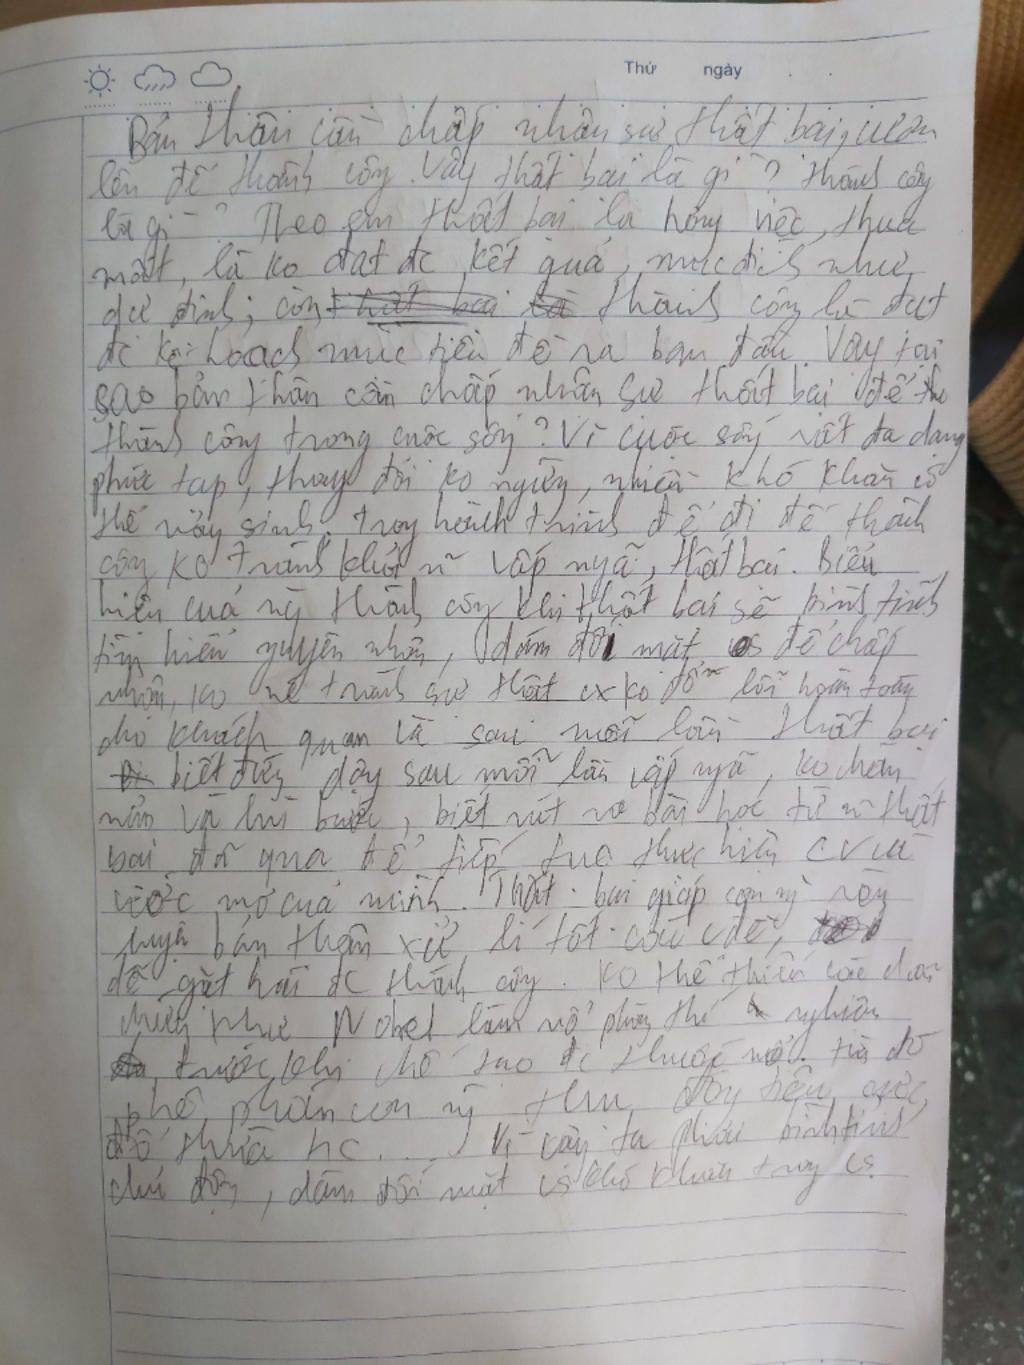 Thứ ngày
Bản thân cần chấp nhận sự thất bại, vươn
lên để thành công. Vậy thất bại là gì? Thành công
là gì? Theo em thất bại là hỏng việc, thua
mất, là ko đạt đc kết quả, mục đích như
dự định; còn thất bại là thành công là đạt
đc kế hoạch mục tiêu đề ra ban đầu. Vậy tại
sao bản thân cần chấp nhận sự thất bại để
thành công trong cuộc sống? Vì cuộc sống rất đa dạng
phức tạp, thay đổi ko ngừng, nhiều khó khăn có
thể nảy sinh, trong hành trình để đi đế thành
công ko tránh khỏi n~ vấp ngã, thất bại. Biểu
hiện của ng thành công khi thất bại sẽ bình tĩnh
tìm hiểu nguyên nhân, dám đối mặt để chấp
nhận, ko né tránh sự thật ko đổ lỗi hoàn toàn
cho khách quan là sau mỗi lần thất bại
biết đứng dậy sau mỗi lần vấp ngã, ko chán
nản và lùi bước, biết rút ra bài học từ n~ thất
bại đã qua để tiếp tục thực hiện cv và
ước mơ của mình. Thất bại giúp con ng rèn
luyện bản thân xử lí tốt các vđề,
để gặt hái đc thành công. Ko thể thiếu
như Nobel làm nổ phòng thí nghiên
trước khi chế tạo đc thuốc nổ. từ đó
phê phán con ng tiêu cực,
đổ thừa hc .... Vì vậy ta phải bình tĩnh
chủ động, dám đối mặt vs khó khăn trong cs